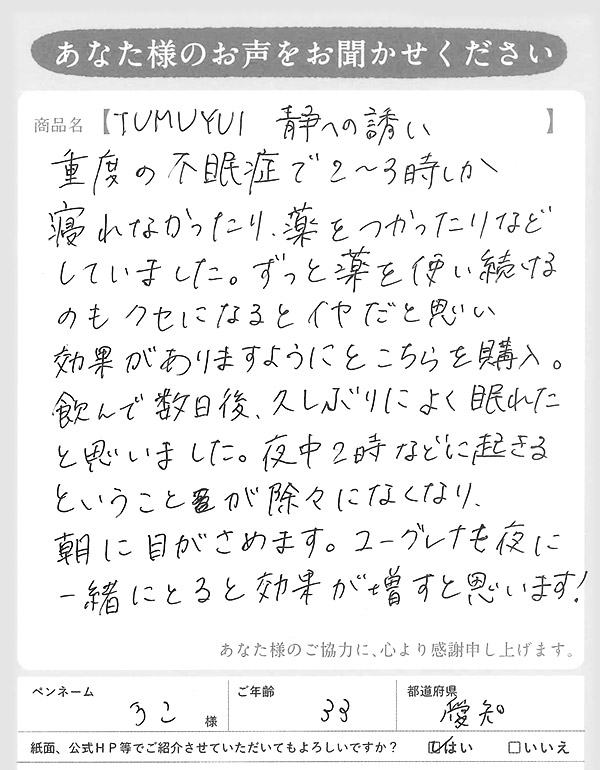 あなた様のお声をお聞かせください
商品名【TUMUYUI 静への誘い】
重度の不眠症で2〜3時しか
寝れなかったり、薬をつかったりなど
していました。ずっと薬を使い続ける
のもクセになるとイヤだと思い
効果がありますようにとこちらを購入。
飲んで数日後、久しぶりによく眠れた
と思いました。夜中2時などに起きる
ということが除々になくなり、
朝に目がさめます。ユーグレナも夜に
一緒にとると効果が増すと思います!
あなた様のご協力に、心より感謝申し上げます。
ペンネーム ろこ 様 ご年齢 33 都道府県 愛知
紙面、公式HP等でご紹介させていただいてもよろしいですか? ☑はい □いいえ